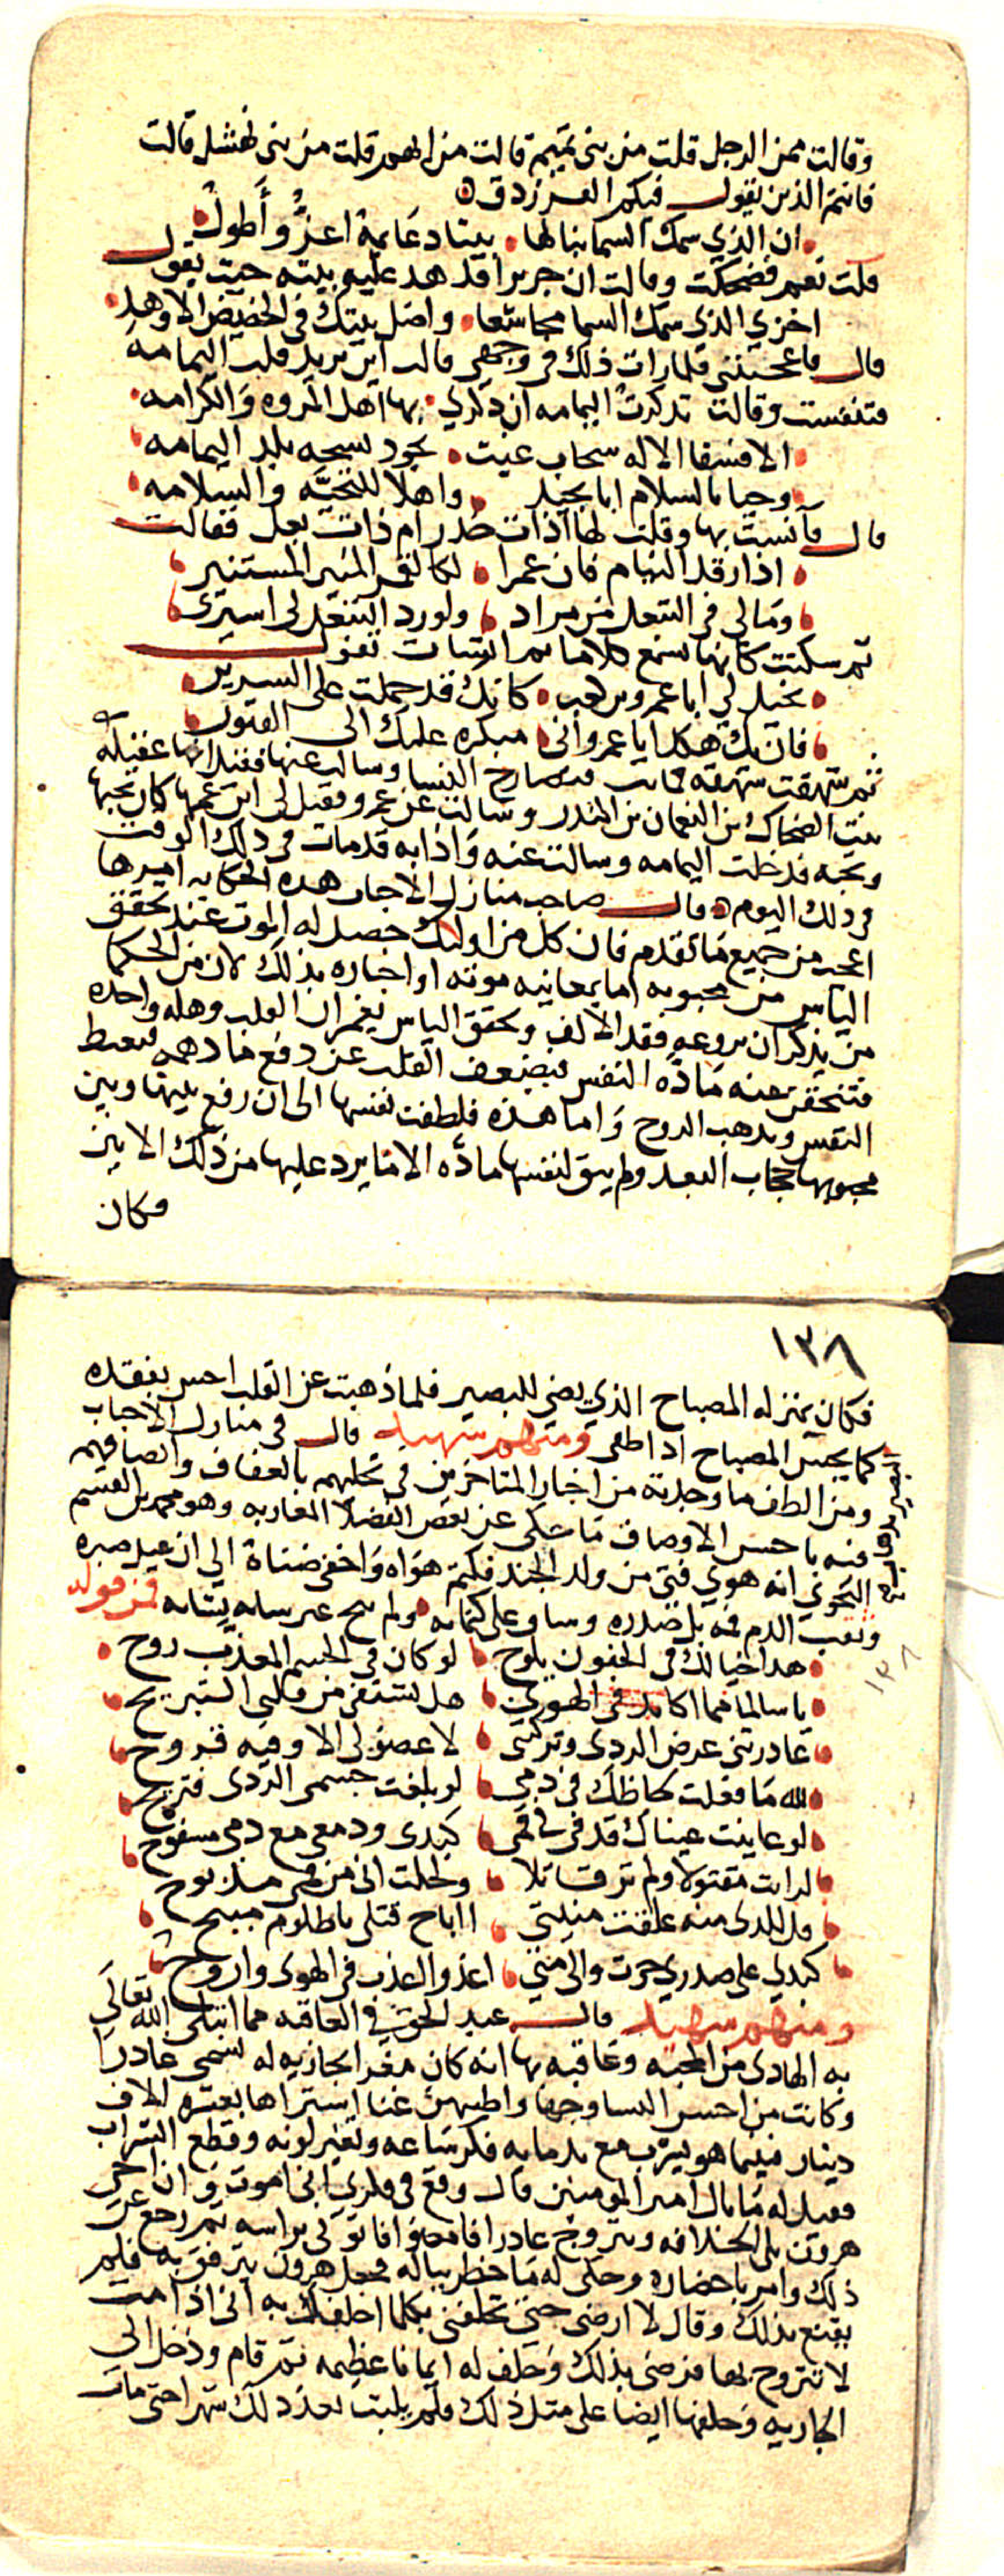 وقالت ممن الرجل قلت من بني تميم قالت من ايهم قلت من بني نهشل قالت
فانتم الذين يقول فيكم الفرزدق
ان الذي سمك السما بنا لها بيتا دعايمه اعز وأطول
قلت نعم فضحكت وقالت ان جريرا قد هد عليه بيته حيث يقول
اخزي الذي سمك السما مجاشعا واضل بيتك في الحضيض الاوهد
قال فاعجبتني فلما رات ذلك في وجهي قالت اين تريد قلت اليمامه
فتنفست وقالت تذكرت اليمامه ان ذكري بها اهل المروه والكرامه
الا فسقا الاله سحاب غيث يجود بسحه بلد اليمامه
وحيا بالسلام ابا نجيد واهلا للتحيه والسلامه
قال فآنست بها وقلت لها آذات خدر ام ذات بعل فقالت
اذا رقد النيام فان عمرا لكالقمر المنير المستنير
ومالي في التبعل من مراد ولو رد التبعل لي اسيري
ثم سكتت كانها تسمع كلاما ثم انشات تقول
يخيل لي ابا عمرو بن كعب كانك قد حملت على السرير
فان يك هكذا يا عمرو اني مبكره عليك الى القبور
ثم شهقت شهقه فماتت فتصارخ النسا وسالت عنها فقيل انها عقيله
بنت الضحاك بن النعمان بن المنذر وسالت عن عمرو فقيل لي ابن عمها كان يحبها
وتحبه فدخلت اليمامه وسالت عنه واذا به قد مات في ذلك الوقت
من ذلك اليوم قال صاحب منازل الاحباب هذه الحكايه اميرها
اعجب من جميع ما تقدم فان كل من اوليك حصل له الموت عند تحقق
الياس من محبوبه اما بمعاينه موته او اخباره بذلك لان من الحكما
من يذكر ان بروعه فقد الالف وتحقق الياس يغمر ان القلب وهله واحده
فتنخنق عنه مادة النفس فيضعف القلب عن دفع ما دهمه فيعبط
النفس وتذهب الروح واما هذه فلطفت نفسها الى ان رفع بينها وبين
محبوبها حجاب البعد ولم يبق لنفسها مادة الا ما يرد عليها من ذلك الاثير
فكان
١٣٨
فكان بمنزله المصباح الذي يضي للبصير فلما ذهبت عن القلب احس بفقده
كما يحس المصباح اذا طفي ومنهم شهيد قال في منازل الاحباب
ومن الطف ما وجدته من اخبار المتاخرين في تحليهم بالعفاف واتصافهم
فيه باحسن الاوصاف ما حكى عن بعض الفضلا المغاربه وهو محمد بن القسم
النحوي انه هوي فتى من ولد الجند فكتم هواه واخفى ضناه الى ان عيل صبره
ونفث الدم فه بل صدره وساو على كتمانه ولم يبح عن لسانه فمن قوله
هذا خيالك في الجفون يلوح لو كان في الجسم المعذب روح
يا سالما مما اكابد في الهوى هل تشتفي من قلبي التبريح
غادرتني غرض الردى وتركتني لا عضو لي الا وفيه قروح
لله ما فعلت لحاظك في دمي لو بلغت جسمي الردى فتريح
لو عاينت عيناك قد في من فمي كبدى ودمعي مع دمي مسفوح
لرايت مقتولا ولم تر قاتلا ولخلت اني من فمي مذبوح
قل للذى منه علقت منيتي اباح قتلي يا ظلوم مبيح
كبدي على صدري جرت والى متى اغدو العذب في الهوى واروح
ومنهم شهيد قال عبد الحق في العاقبه مما ابتلى الله تعالى
به الهادى من المحبه وعاقبه بها انه كان مغرا بجاريه له تسمى غادرا
وكانت من احسن النسا وجها واطيبهن غنا اشتراها بعشره الاف
دينار فبينما هو يشرب مع ندمايه فكر ساعه وتغير لونه وقطع الشراب
فقيل له ما بال امير المومنين قال وقع في فكري اني اموت وان اخي
هرون يلي الخلافه ويتزوج غادرا فامضوا فاتوني براسه ثم رجع عن
ذلك وامر باحضاره وحكى له ما خطر بباله فجعل هرون يترفق به فلم
يقنع بذلك وقال لا ارضى حتى تحلفن بكلما احلفك به اني اذا مت
لا تتزوج بها فرضى بذلك وحلف له ايمانا عظيمه ثم قام ودخل الى
الجاريه وحلفها ايضا على مثل ذلك ولم يلبث بعد ذلك شهرا حتى مات
١٣٨